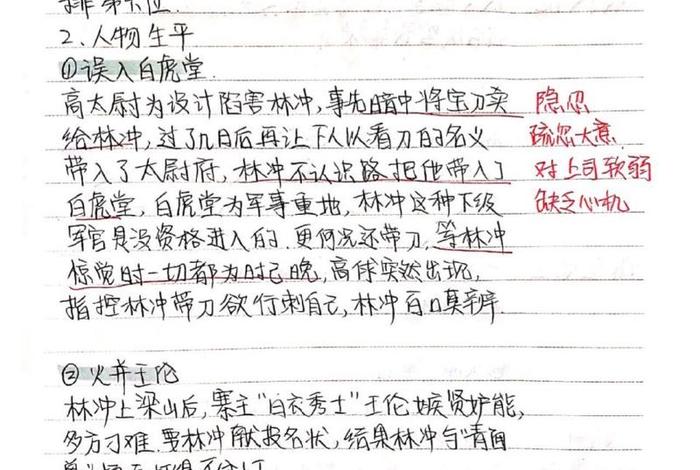 2、人物生平
①误入白虎堂.
高太尉为设计陷害林冲,事先暗中将宝刀卖 隐忍
给林冲,过了几日后再让下人以看刀的名义 疏忽大意.
带入了太尉府,林冲不认识路,把他带入了 对上司软弱
白虎堂,白虎堂为军事重地,林冲这种下级 缺乏心机
军官是没资格进入的.更何况还带刀,等林冲
惊觉时一切都为时已晚,高俅突然出现,
指控林冲带刀欲行刺自己,林冲百口莫辨.
②火并王伦
林冲上梁山后,寨主"白衣秀士"王伦嫉贤妒能,
多方刁难.要林冲献投名状,结果林冲与"青面